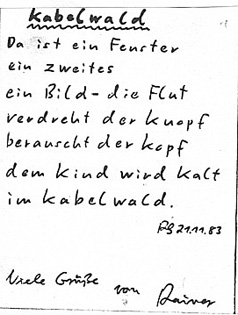 Kabelwald
Da ist ein Fenster
ein zweites
ein Bild - die Flut
verdreht der Knopf
berauscht der Kopf
dem Kind wird kalt
im Kabelwald.
RB 21.11.83
Viele Grüße von Rainer